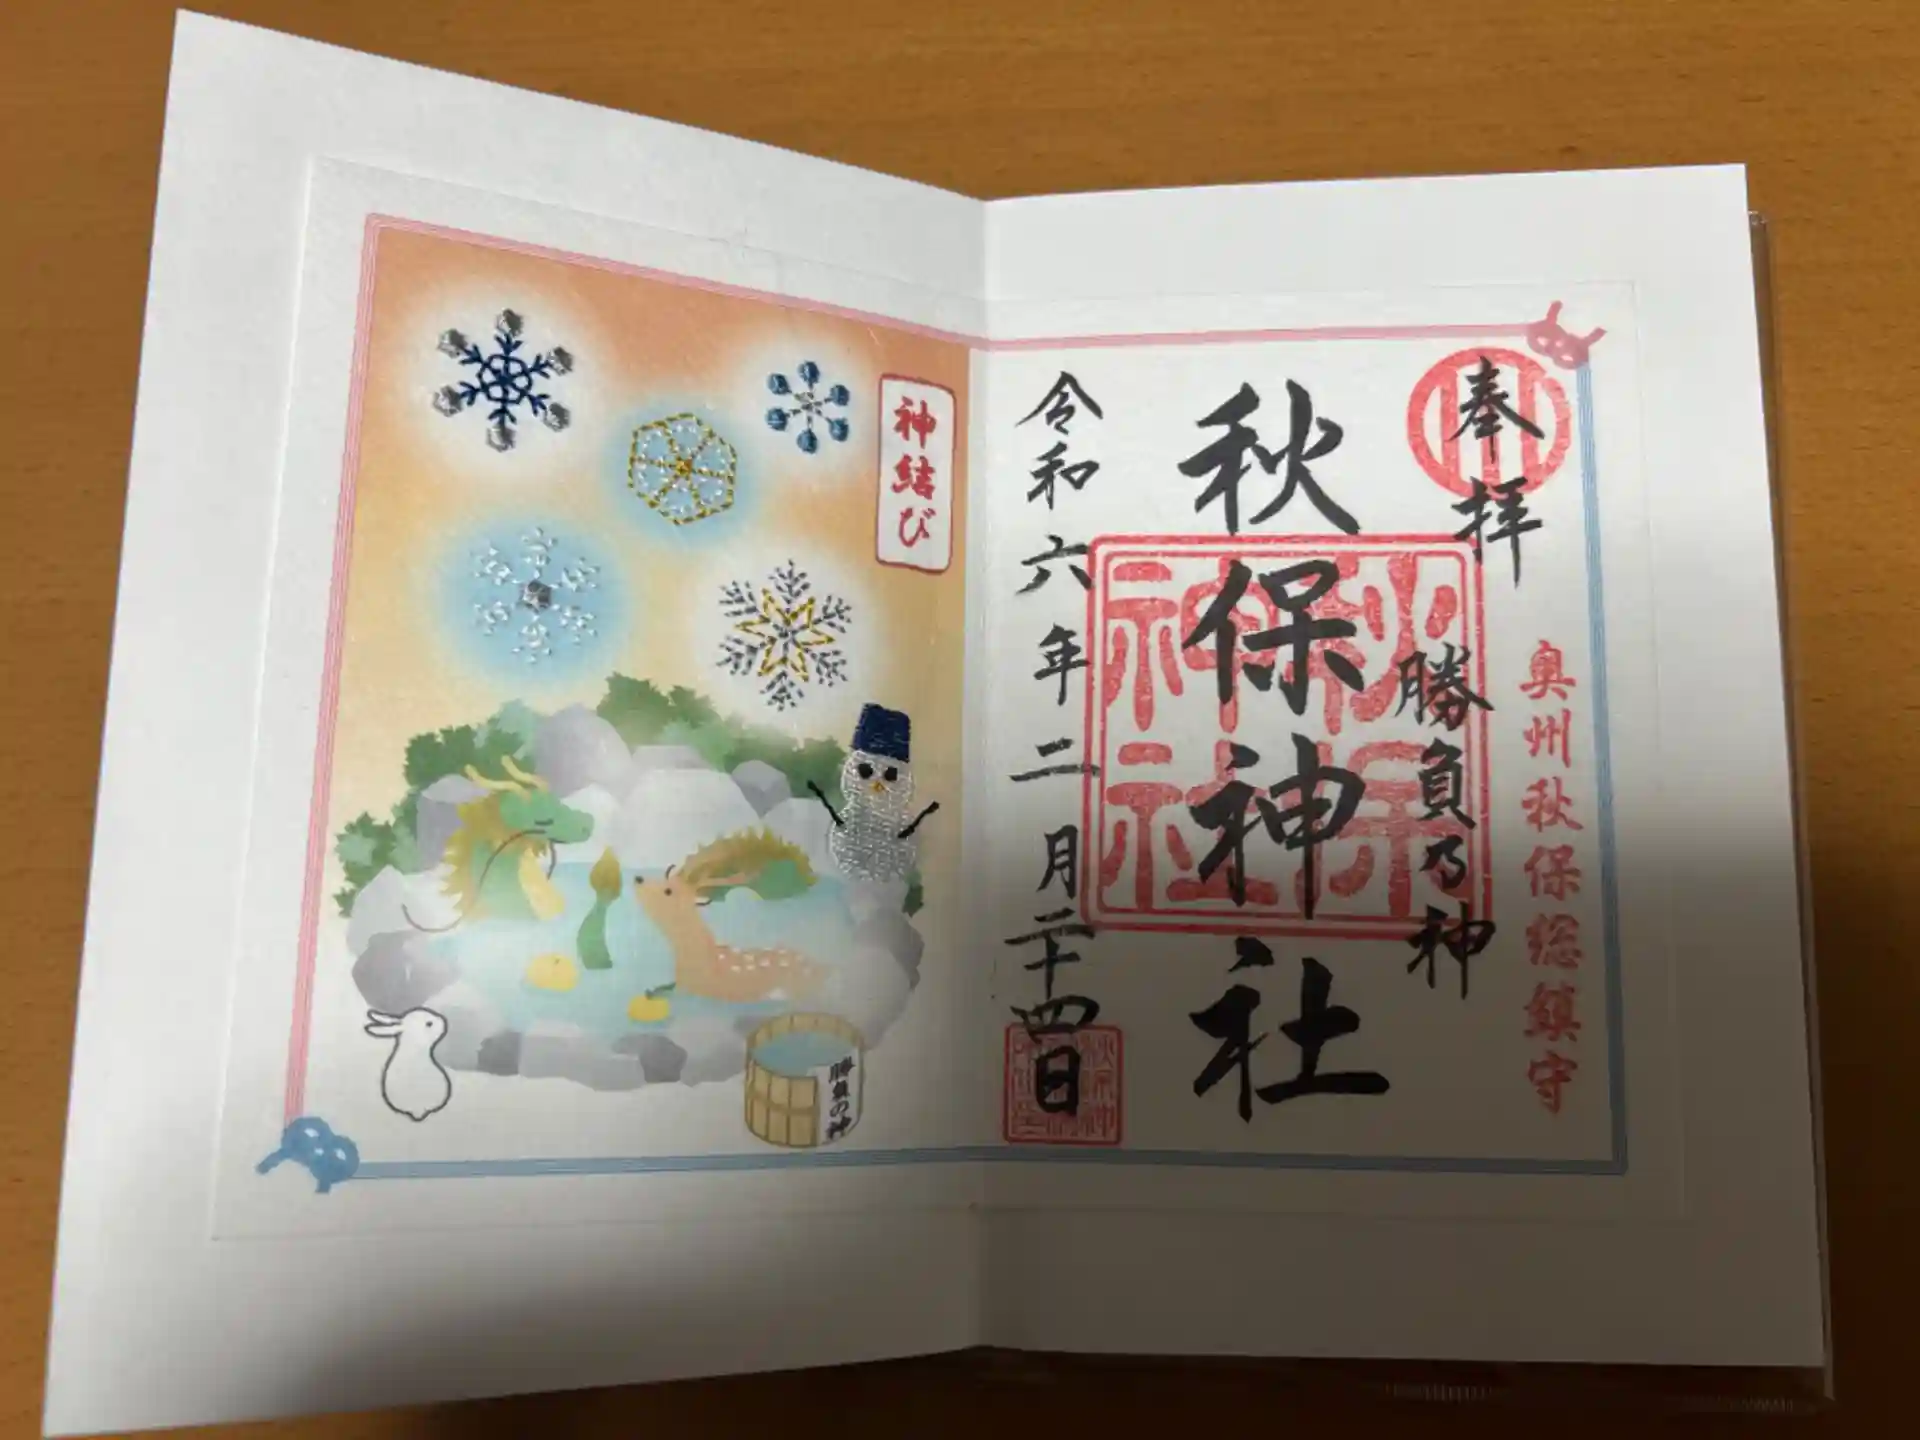 奉拝
奥州秋保総鎮守
勝負乃神
秋保神社
秋保神社
令和六年二月二十四日
神結び
勝負の神